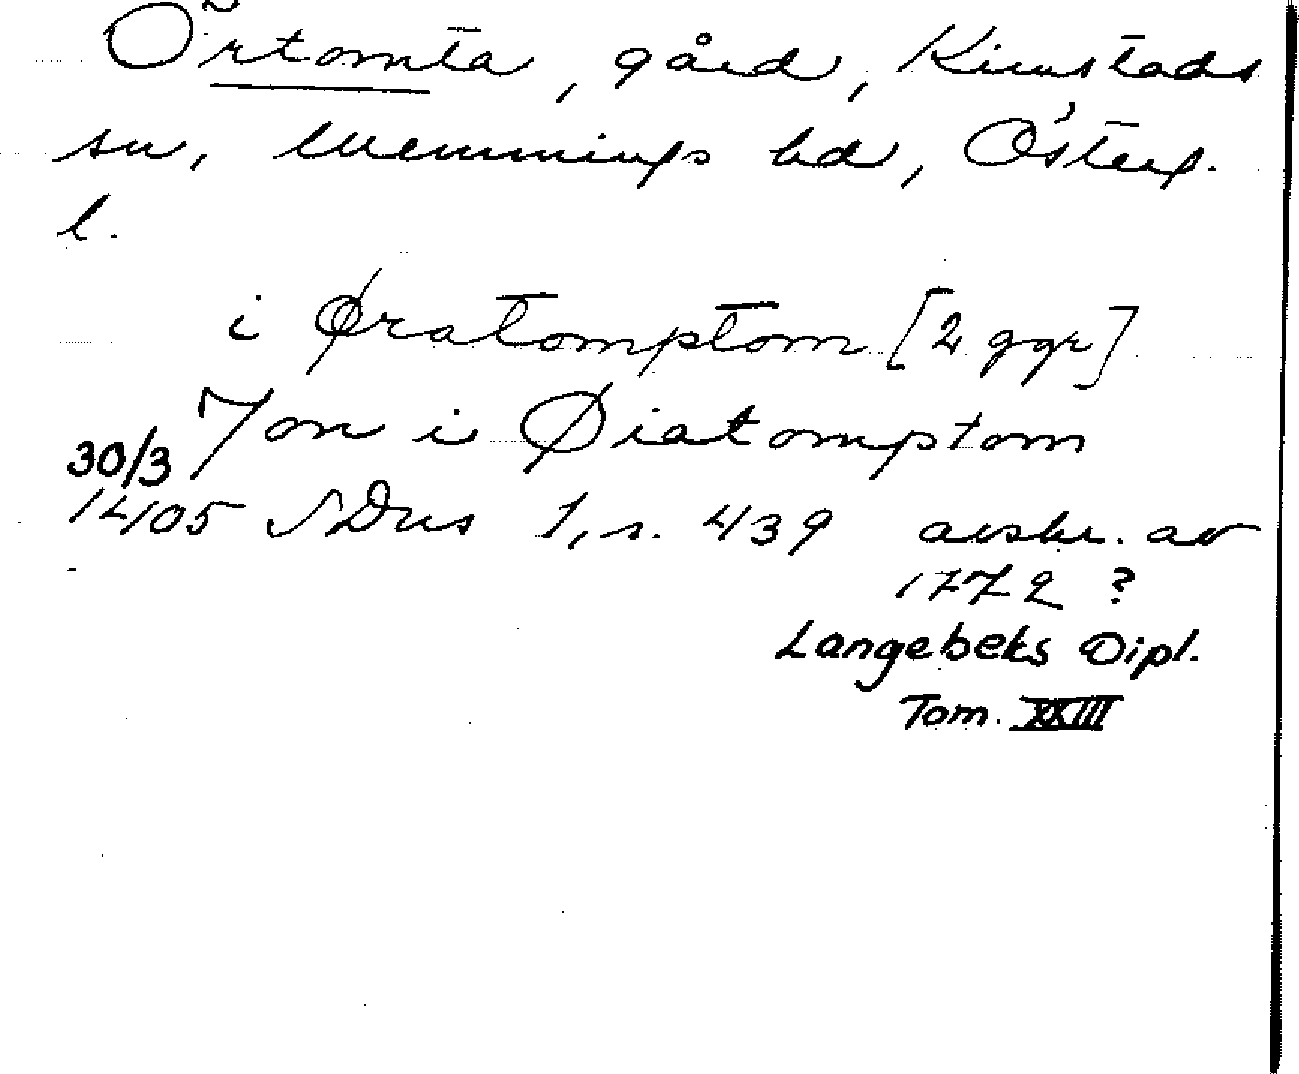 Örtomta, gård, Kimstads
sn, Memmings hd, Österg.
l.
i Øratomptom [2 ggr]
Jon i Øiatomptom
30/3
1405 SDns 1, s. 439 avskr. av
1772 ?
Langebeks Dipl.
Tom. XXIII